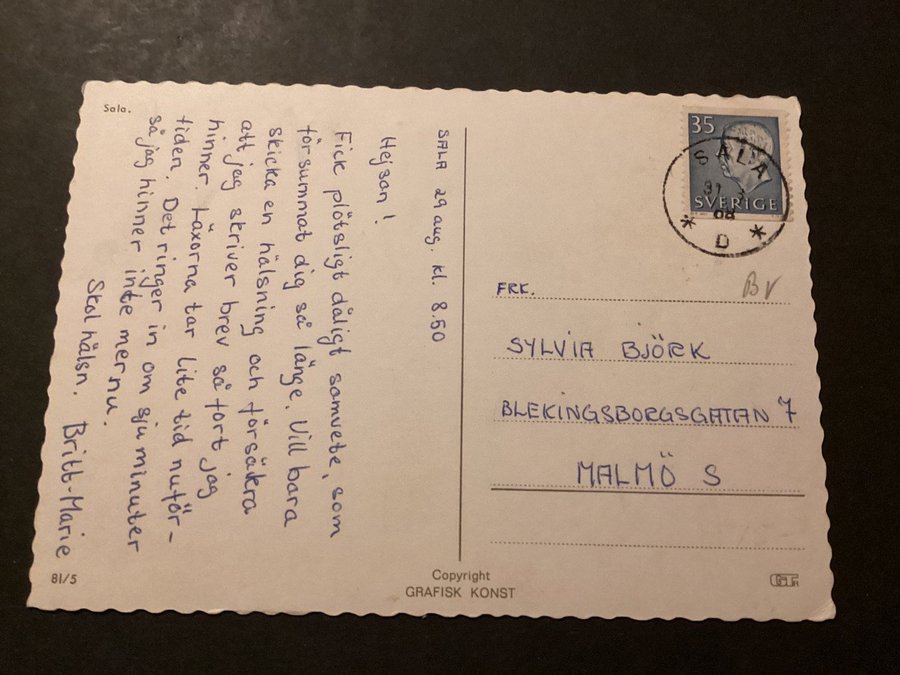 Sala.
SALA 29 aug. kl. 8.50
Hejsan!
Fick plötsligt dåligt samvete, som
försummat dig så länge. Vill bara
skicka en hälsning och försäkra
att jag skriver brev så fort jag
hinner. Läxorna tar lite tid nuför-
tiden. Det ringer in om sju minuter
så jag hinner inte mer nu.
Skol hälsn. Britt-Marie
81/5
Copyright
GRAFISK KONST
35
SVERIGE
SALA
D
BV
FRK.
SYLVIA BJÖRK
BLEKINGSBORGSGATAN 7
MALMÖ S